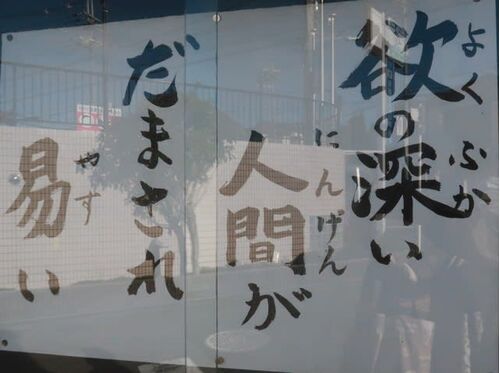 欲の深い
よくふか
人間が
にんげん
だまされ
易い
やす